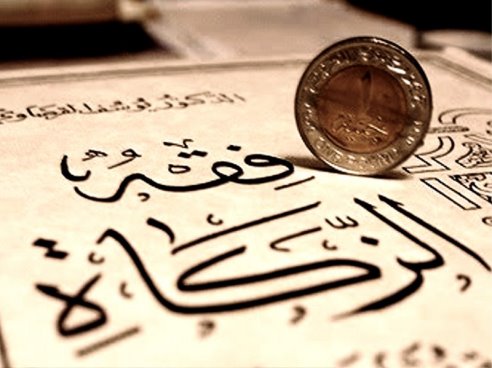 الدكتور يوسف القرضاوي
فقه
الزكاة
١
جنيه